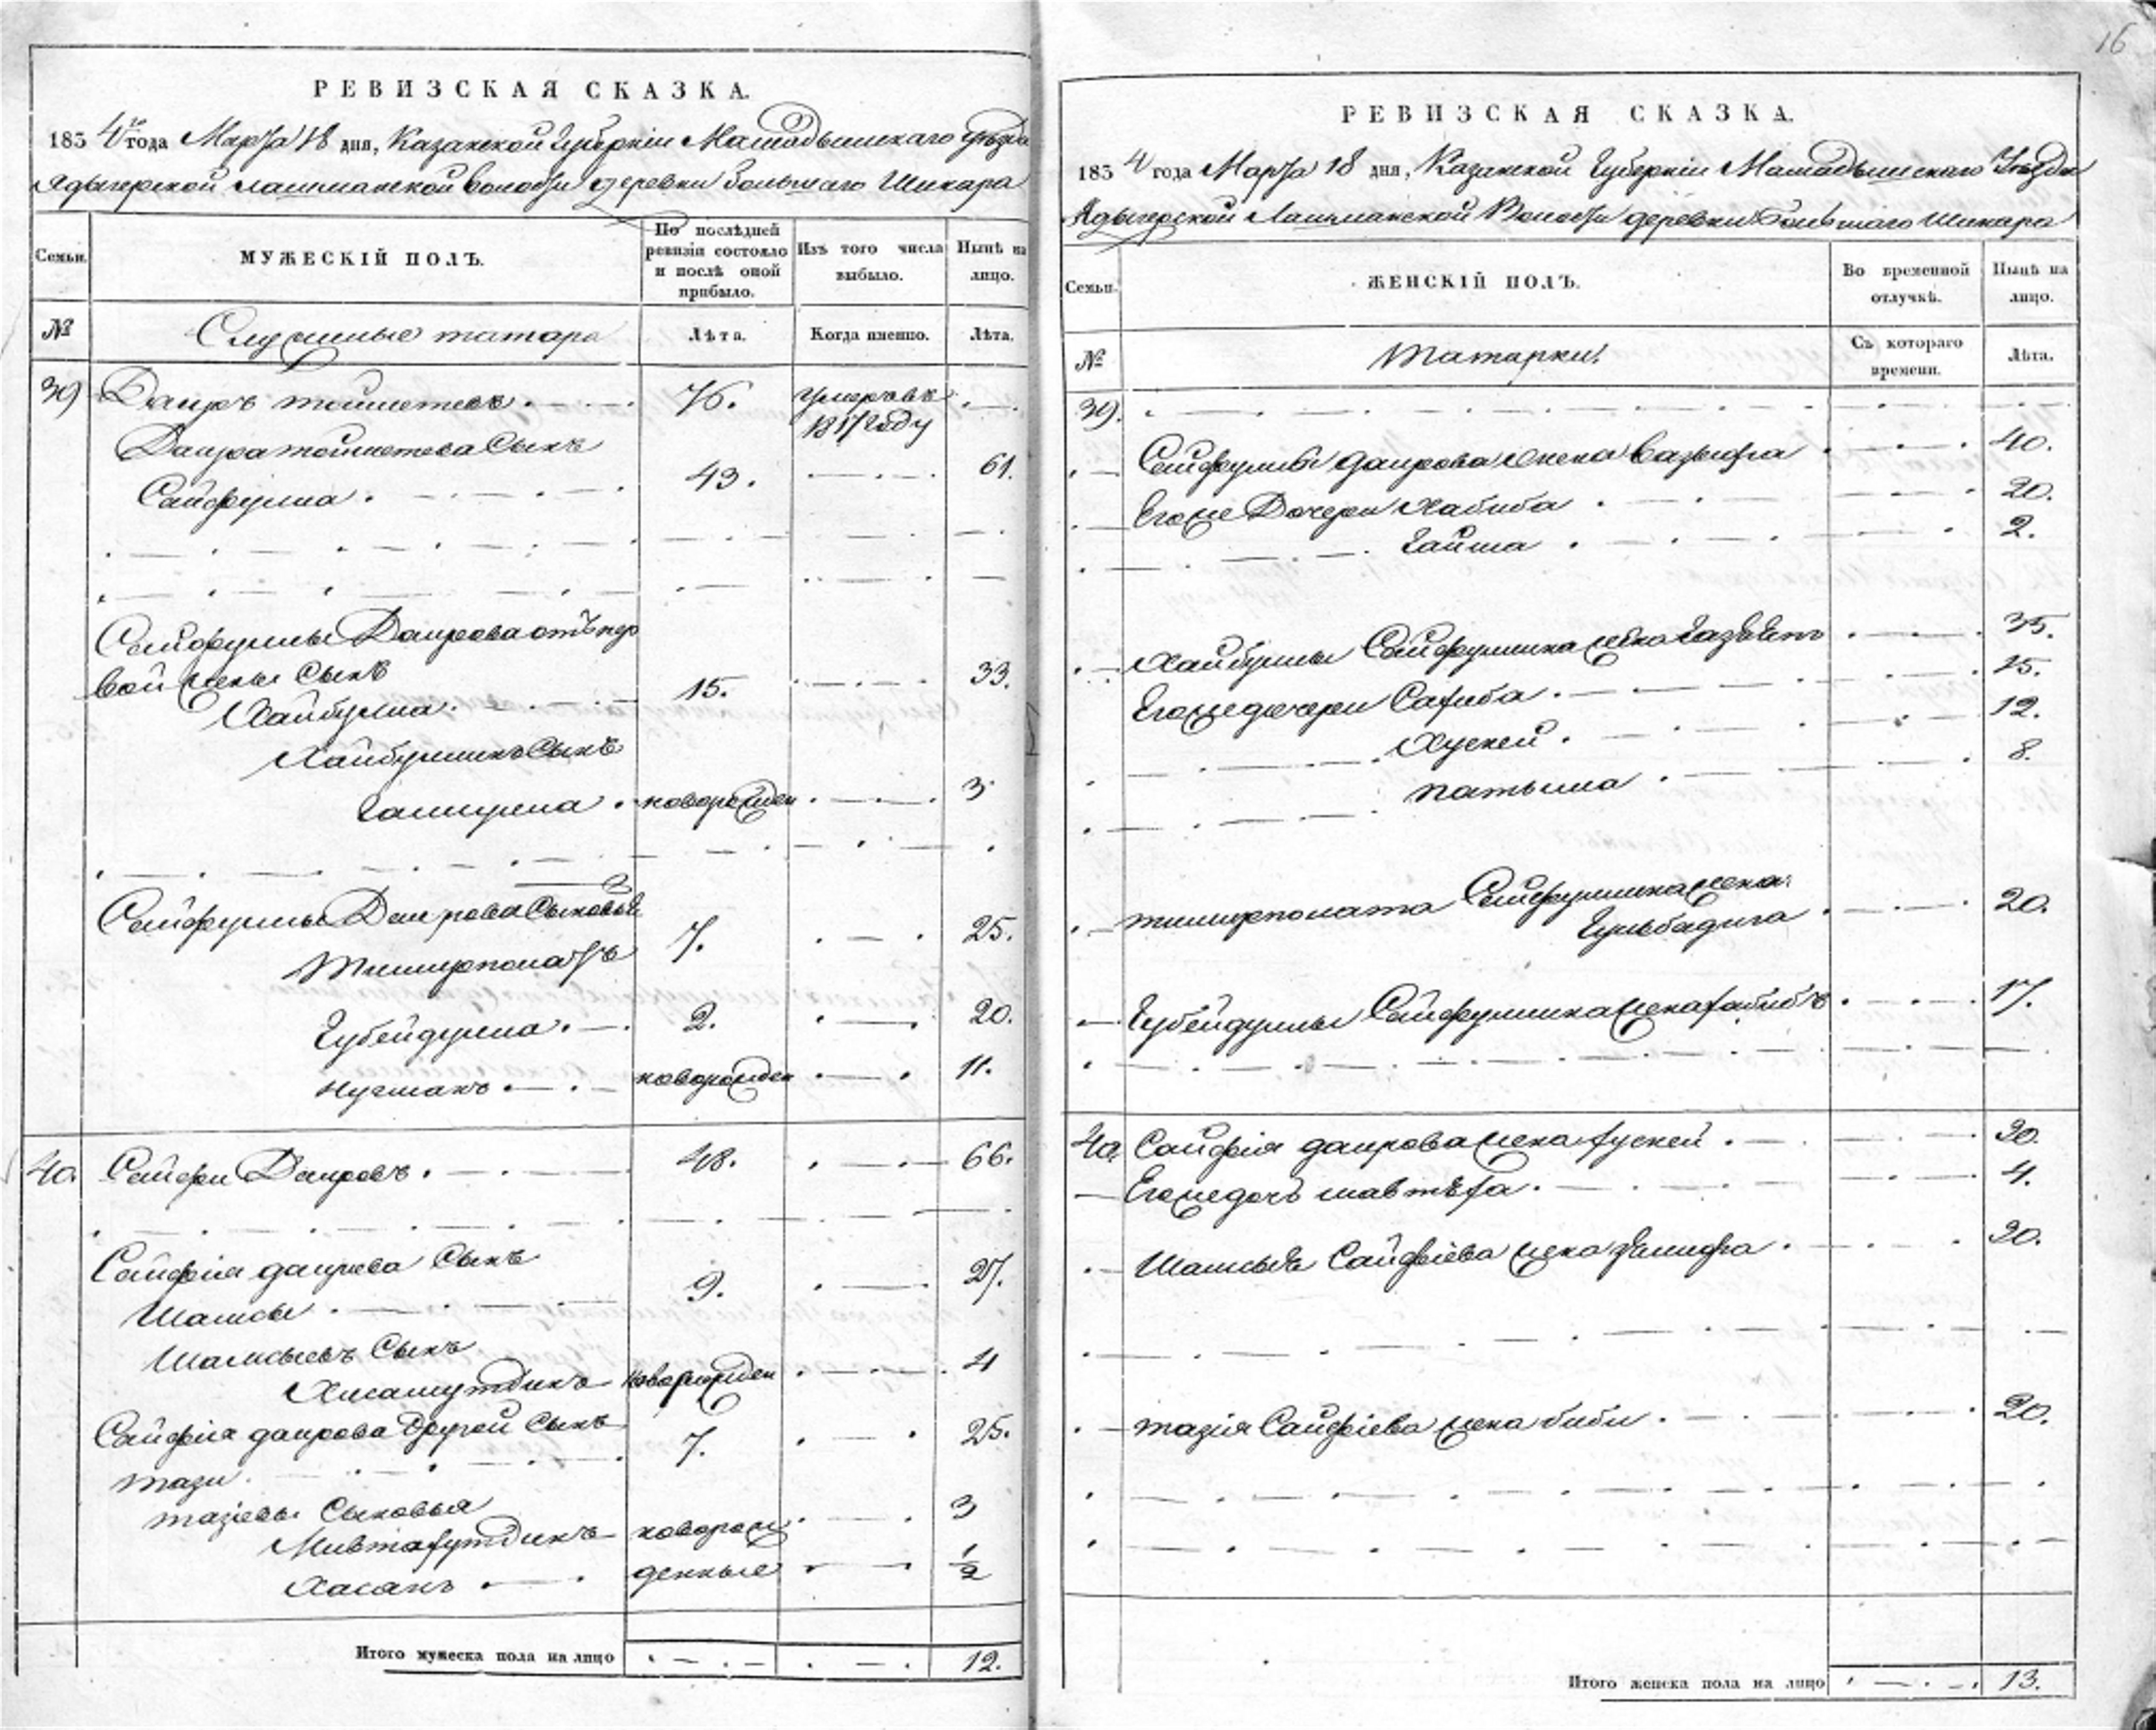 РЕВИЗСКАЯ СКАЗКА.
1834го года Марта 18 дня, Казанской Губерніи Мамадышскаго уѣзда
Адыгерской лашманской волости деревни большаго Шикара
Семьи. МУЖЕСКІЙ ПОЛЪ. По послѣдней ревизіи состояло и послѣ оной прибыло. Изъ того числа выбыло. Нынѣ на лицо.
№ Служилые татара Лѣта. Когда именно. Лѣта.
39 Даиръ тойметевъ 76. умеръ въ 1817 году
Даира тойметева Сынъ
Сайфулла 43. 61.
Сайфуллы Даирова отъ пер
вой жены Сынъ
Хайбулла 15. 33.
Хайбуллинъ Сынъ
новорожден 3
Сайфуллы Даирова Сыновья
Тимирполатъ 7. 25.
Губейдулла 2. 20.
Нугманъ новорожден 11.
40. Сайфи Даировъ 48. 66.
Сайфія даирова Сынъ
Шамсы 9. 27.
Шамсыевъ Сынъ
Хисамутдинъ новорожден 4
Сайфія даирова другой Сынъ
тази 7. 25.
тазіевы Сыновья
Мивтахутдинъ новорож 3
Хасанъ денные 1/2
Итого мужеска пола на лицо 12.
16
РЕВИЗСКАЯ СКАЗКА.
1834 года Марта 18 дня, Казанской Губерніи Мамадышскаго Уѣзда
Адыгерской Лашманской Волости деревни Большаго Шикара
Семьи. ЖЕНСКІЙ ПОЛЪ. Во временной отлучкѣ. Нынѣ на лицо.
№ Татарки. Съ котораго времени. Лѣта.
39.
Сайфуллы даирова жена Вазыфа 40.
Егоже Дочери Хабиба 20.
Гайша 2.
Хайбуллы Сайфуллина жена 35.
Егоже дочери Сахиба 15.
Хусней 12.
патыма 8.
тимирполата Сайфуллина жена
Гульбадига 20.
Губейдуллы Сайфуллина жена хабибъ 17.
40. Сайфія даирова жена хусней 30.
Егоже дочь мавтѣха 4.
Шамсыя Сайфіева жена 20.
тазія Сайфіева жена биби 20.
Итого женска пола на лицо 13.